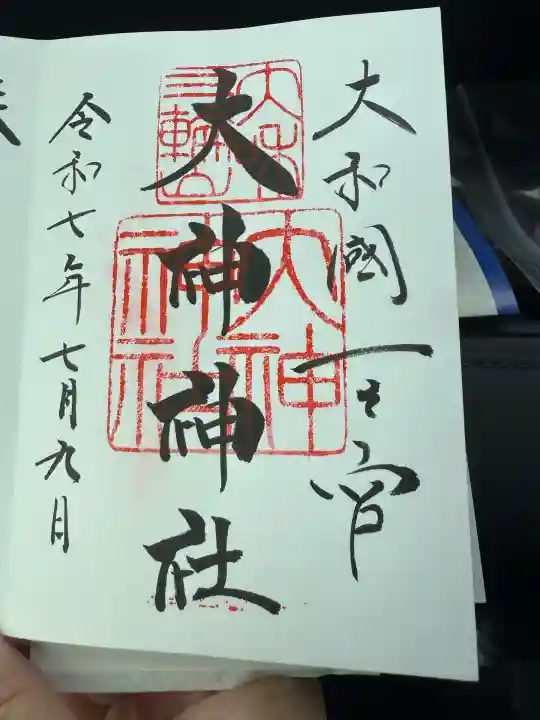 大和國一之宮
大神神社
三輪
大神神社
令和七年七月九日